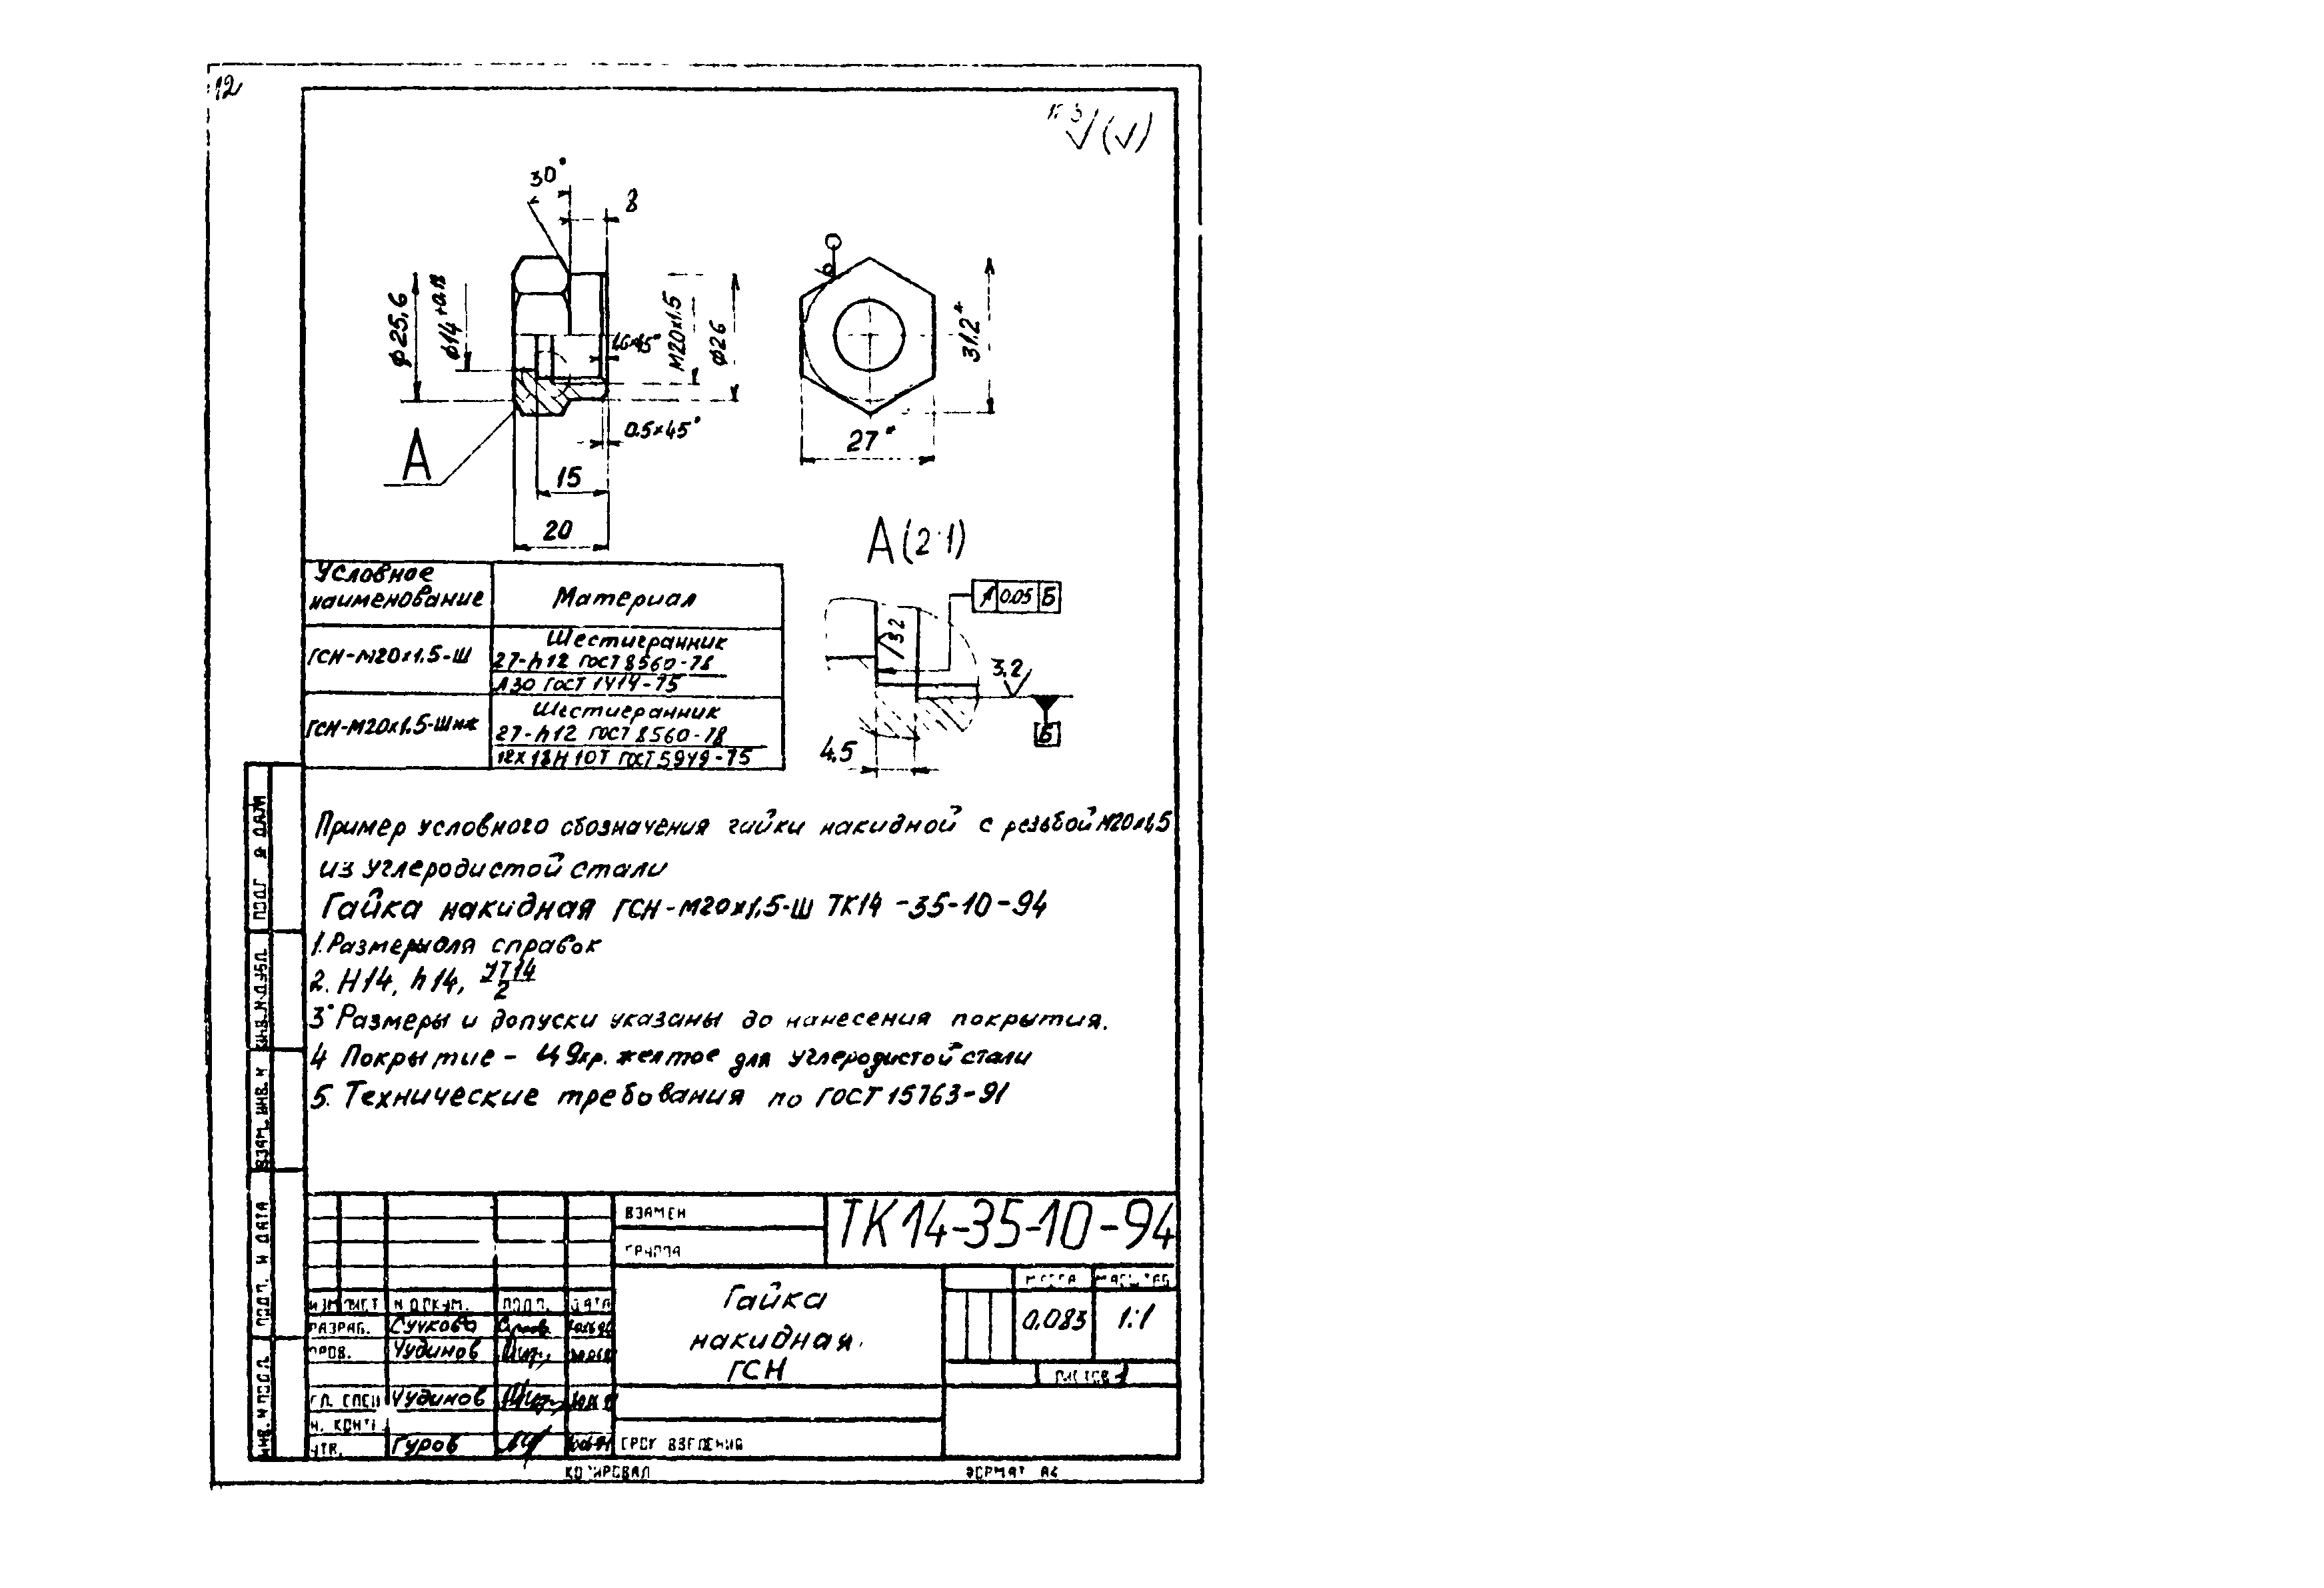 12
30°
8
φ25,6
φ14
М20х1.5
φ26
1,6×45°
0.5×45°
31,2*
27*
А
15
20
А(2:1)
0.05 Б
3,2
3,2
Б
4,5
Условное наименование
Материал
ГСН-М20х1.5-Ш
Шестигранник
27-h12 ГОСТ 8560-78
А30 ГОСТ 1414-75
ГСН-М20х1,5-Шнж
Шестигранник
27-h12 ГОСТ 8560-78
12Х18Н10Т ГОСТ 5949-75
Пример условного обозначения гайки накидной с резьбой М20х1,5
из углеродистой стали
Гайка накидная ГСН-М20х1,5-Ш ТК14-35-10-94
1. Размеры для справок
2. Н14, h14, JT14/2
3. Размеры и допуски указаны до нанесения покрытия.
4 Покрытие - Ц9хр. желтое для углеродистой стали
5. Технические требования по ГОСТ 15763-91
ПОДП. И ДАТА
ИНВ. N ДУБЛ.
ВЗАМ. ИНВ. N
ПОДП. И ДАТА
ИНВ. N ПОДЛ.
ВЗАМЕН
ГРУППА
ТК14-35-10-94
ИЗМ ЛИСТ N ДОКУМ. ПОДП. ДАТА
РАЗРАБ. Сучкова
ПРОВ. Чудинов
ГЛ. СПЕЦ Чудинов
Н. КОНТР.
УТВ. Гуров
Гайка
накидная
ГСН
МАССА МАСШТАБ
0,083 1:1
ЛИСТОВ 1
СРОК ВВЕДЕНИЯ
КОПИРОВАЛ
ФОРМАТ А4